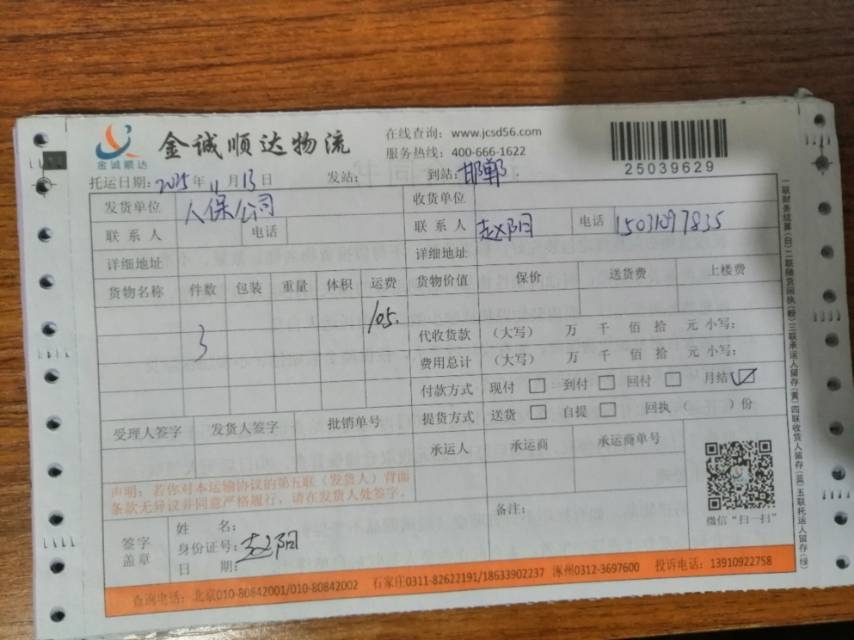 金诚顺达
金诚顺达物流
在线查询：www.jcsd56.com
服务热线：400-666-1622
25039629
托运日期：2025年11月13日 发站： 到站：邯郸
发货单位 人保公司 收货单位
联系人 电话 联系人 赵阳 电话 15031097835
详细地址 详细地址
货物名称 件数 包装 重量 体积 运费 货物价值 保价 送货费 上楼费
105.
3 代收货款 （大写） 万 千 佰 拾 元 小写：
费用总计 （大写） 万 千 佰 拾 元 小写：
付款方式 现付 □ 到付 □ 回付 □ 月结 ☑
受理人签字 发货人签字 批销单号 提货方式 送货 □ 自提 □ 回执（ ）份
承运人 承运商 承运商单号
声明：若你对本运输协议的第五联（发货人）背面
条款无异议并同意严格履行，请在发货人处签字。
备注：
微信“扫一扫”
签字
盖章
姓 名：
身份证号：赵阳
日 期：
查询电话：北京010-80842001/010-80842002 石家庄0311-82622191/18633902237 涿州0312-3697600 投诉电话：13910922758
一联财务结算（白）二联随货回执（粉）三联承运人留存（黄）四联收货人留存（蓝）五联托运人留存（绿）